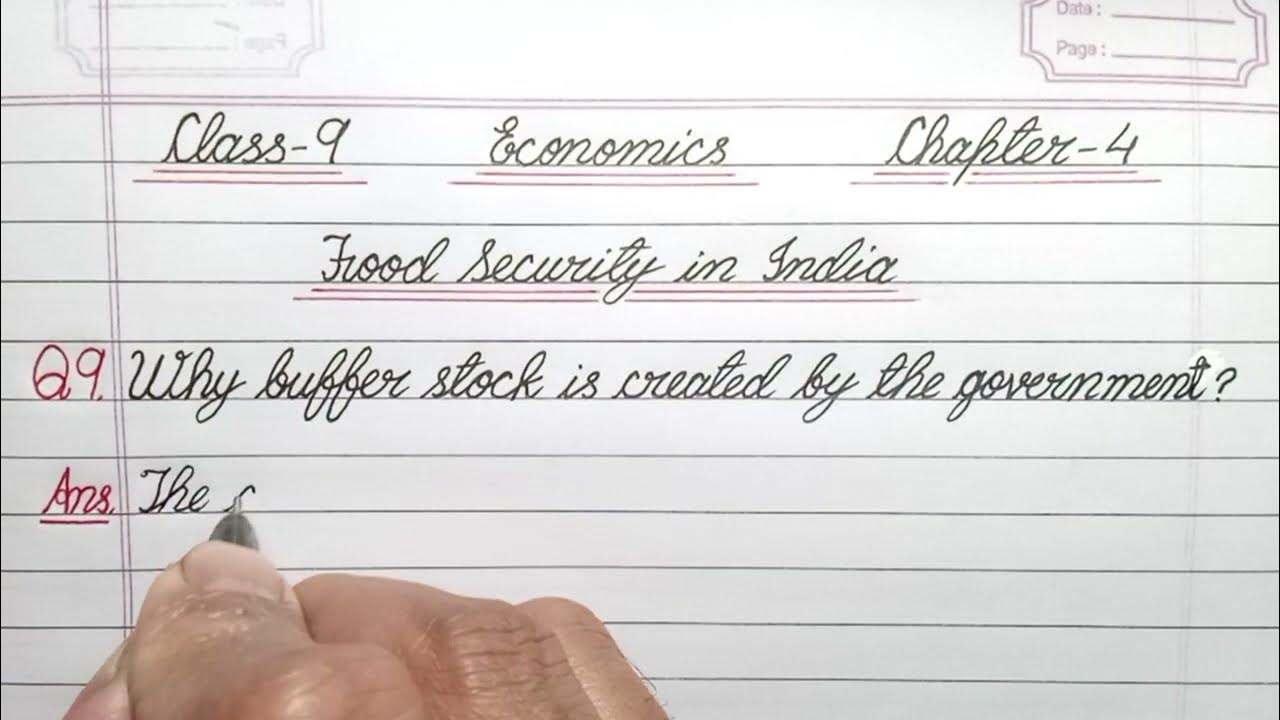 Date:
Page:
Class-9 Economics Chapter-4
Food Security in India
Q9. Why buffer stock is created by the government?
Ans. The